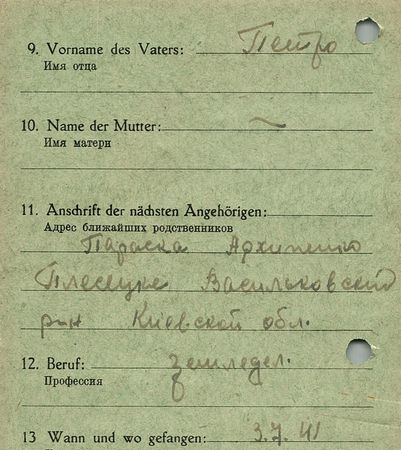 9. Vorname des Vaters: Петро
Имя отца
10. Name der Mutter: ~
Имя матери
11. Anschrift der nächsten Angehörigen:
Адрес ближайших родственников
Параска Архипенко
Плесецке Васильковский
р-н Киевской обл.
12. Beruf: земледел.
Профессия
13 Wann und wo gefangen: 3.7.41